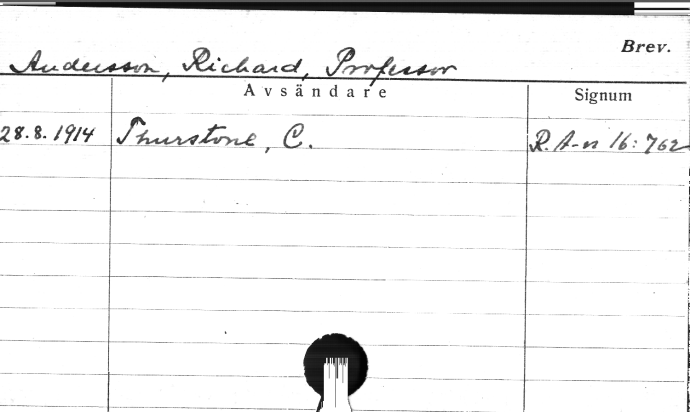 Brev.
Andersson, Richard, Professor
Avsändare Signum
28.8.1914 Thurstone, C. R. A-n 16:762